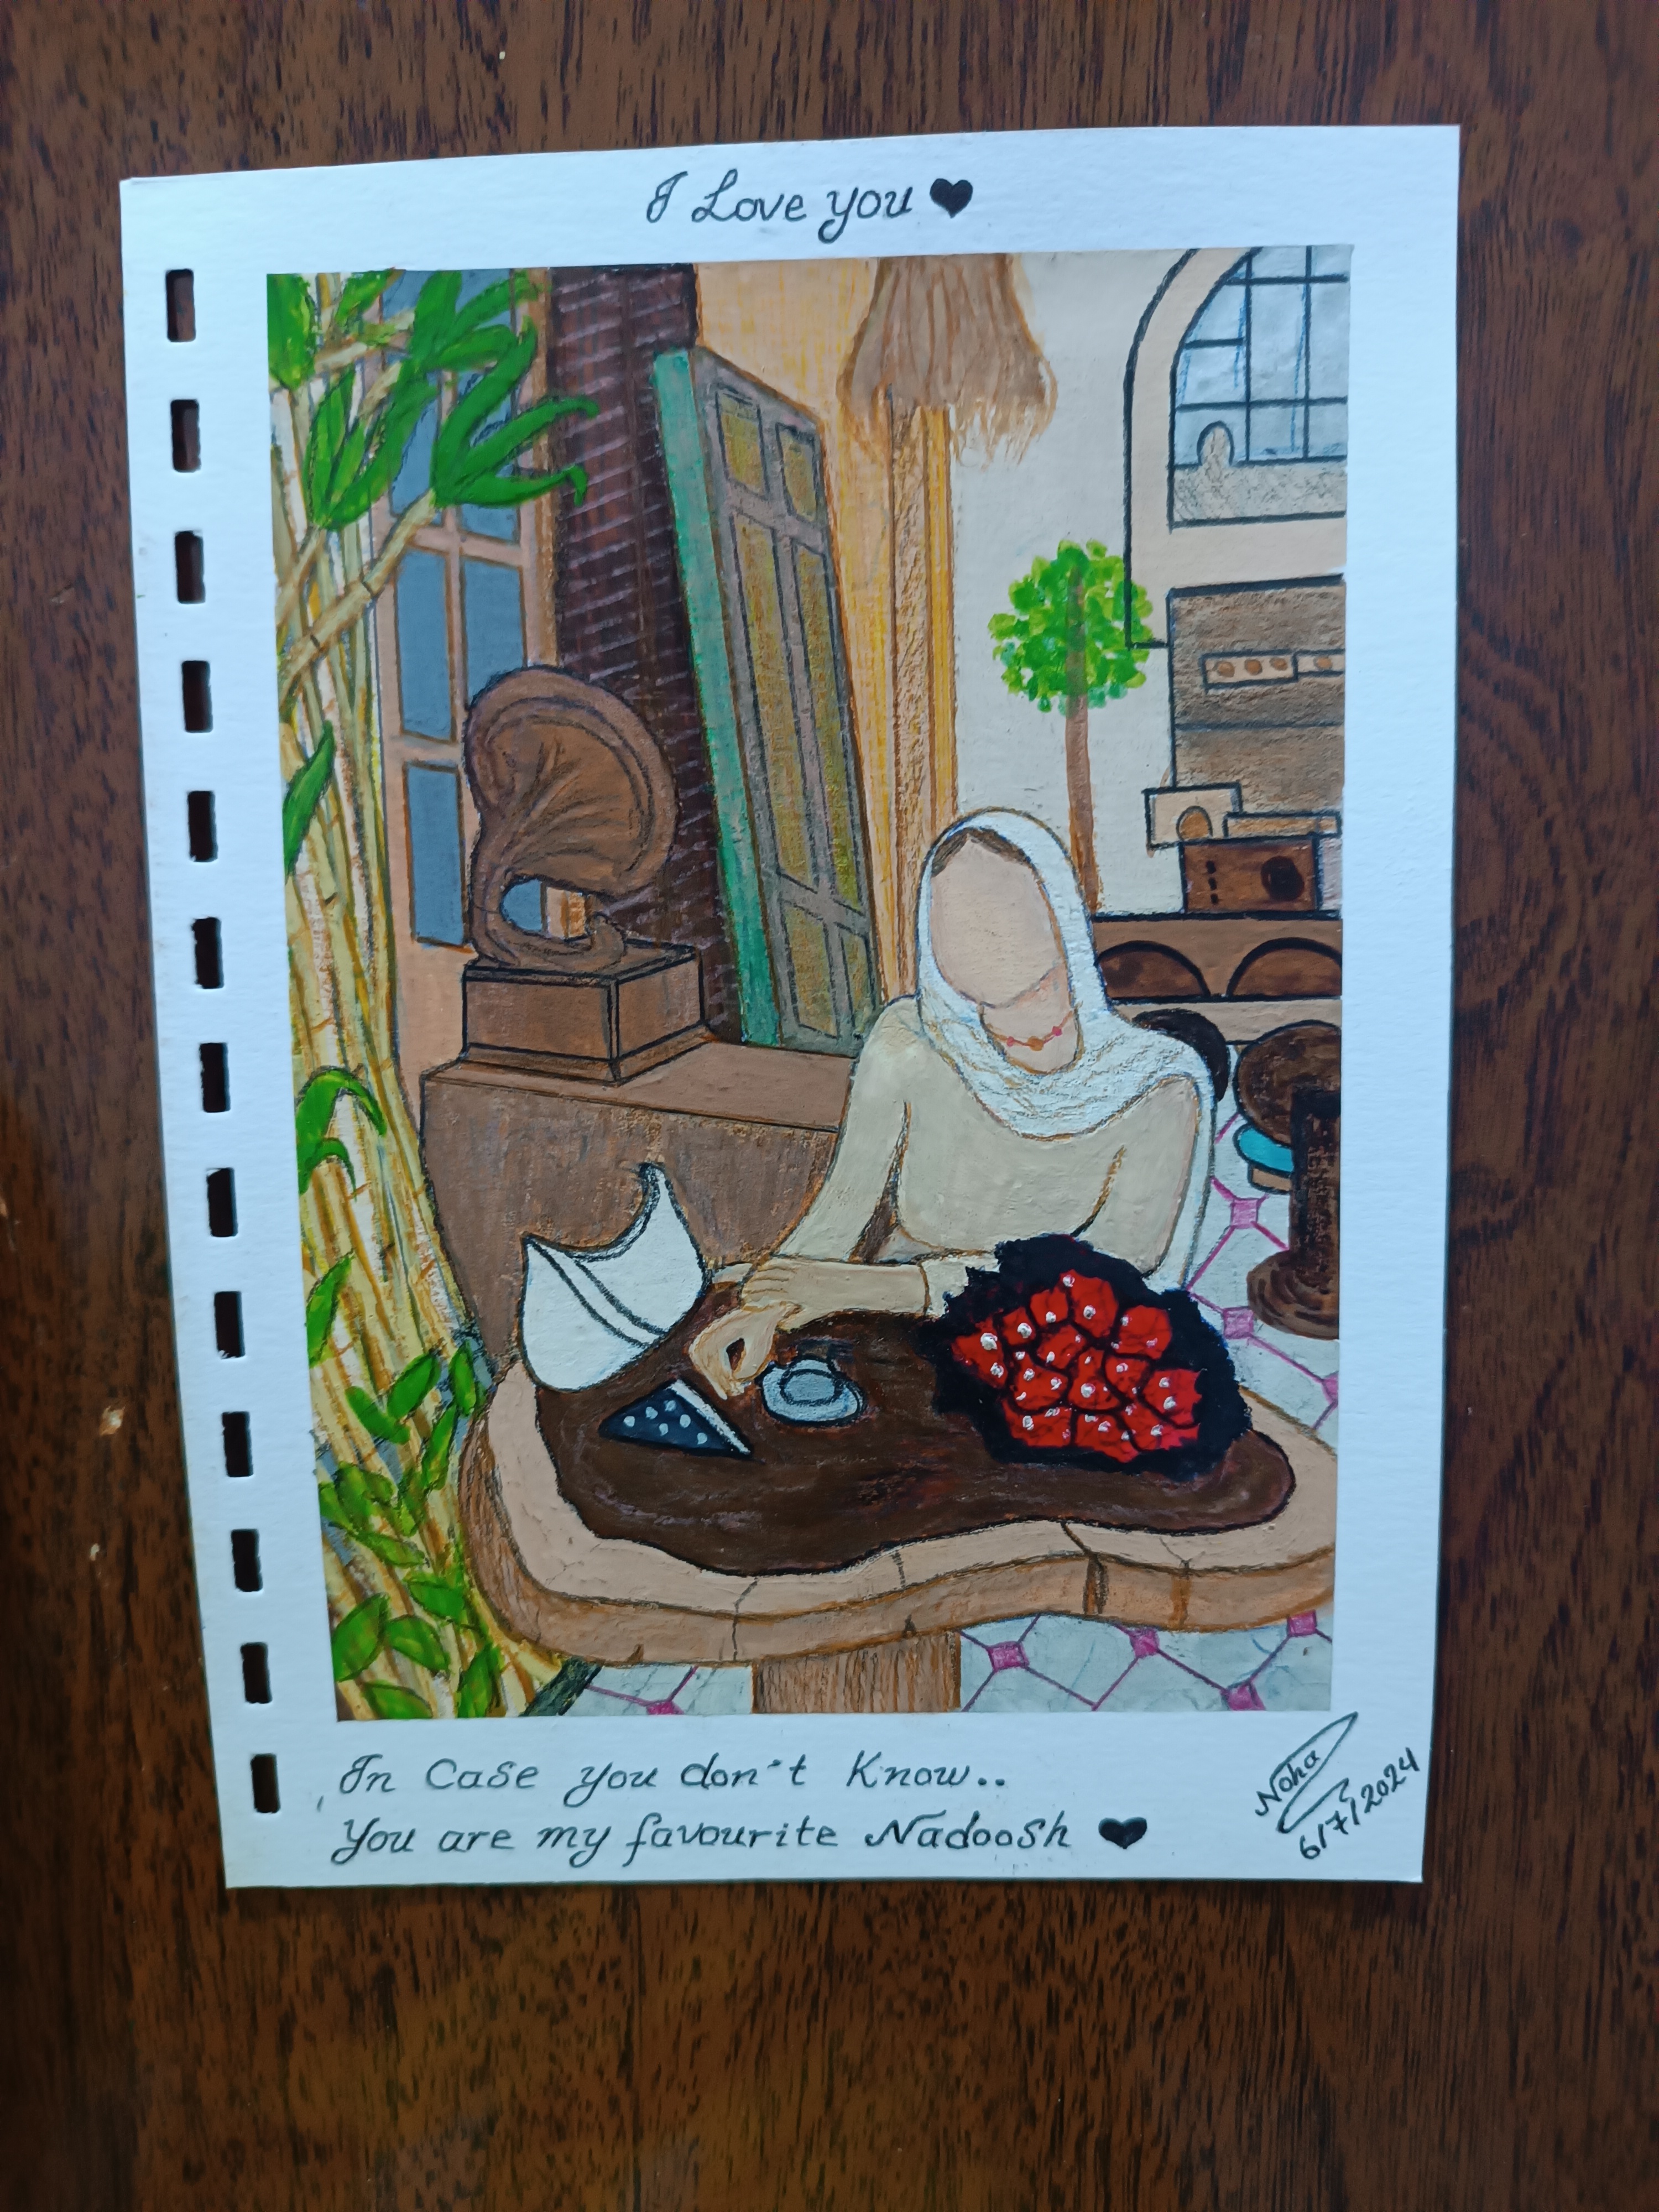 I Love you 🖤
In Case you don't Know..
You are my favourite Nadoosh 🖤
Noha
6/7/2024